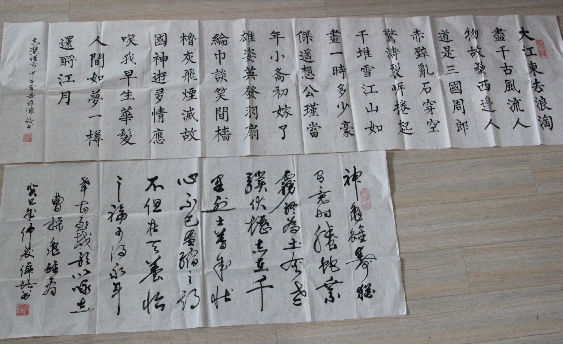 大江東去浪淘
盡千古風流人
物故壘西邊人
道是三國周郎
赤壁亂石穿空
驚濤裂岸捲起
千堆雪江山如
畫一時多少豪
傑遥想公瑾當
年小喬初嫁了
雄姿英發羽扇
綸巾談笑間檣
櫓灰飛煙滅故
國神遊多情應
笑我早生華髮
人間如夢一樽
還酹江月
神龜雖壽猶
有竟時騰蛇乘
霧終為土灰老
驥伏櫪志在千
里烈士暮年壯
心不已盈縮之期
不但在天養怡
之福可得永年
幸甚至哉歌以詠志
曹操龜雖壽
癸巳年仲秋